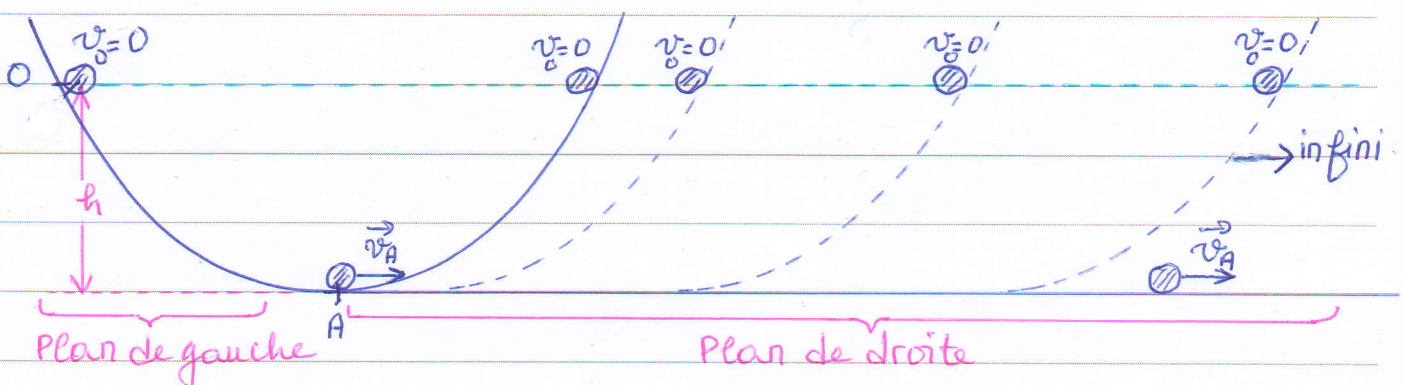 v₀=0 v₀=0 v₀=0 v₀=0 v₀=0
O
infini
h
v⃗A v⃗A
A
Plan de gauche Plan de droite